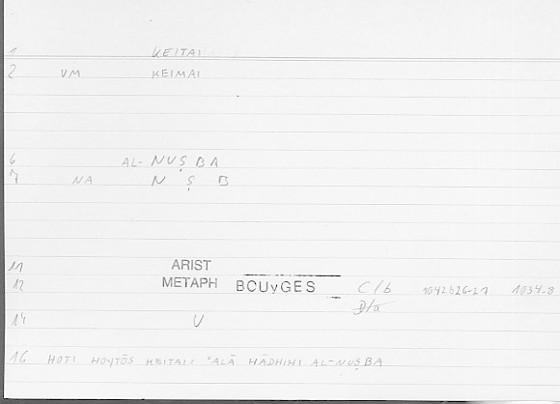 1 KEITAI
2 VM KEIMAI
6 AL-NUṢBA
7 NA N Ṣ B
11 ARIST
12 METAPH BOUYGES C/b 1042b26-27 1034-8
D/a
14 V
16 HOTI HOYTŌS KEITAI: ʿALĀ HĀDHIHI AL-NUṢBA